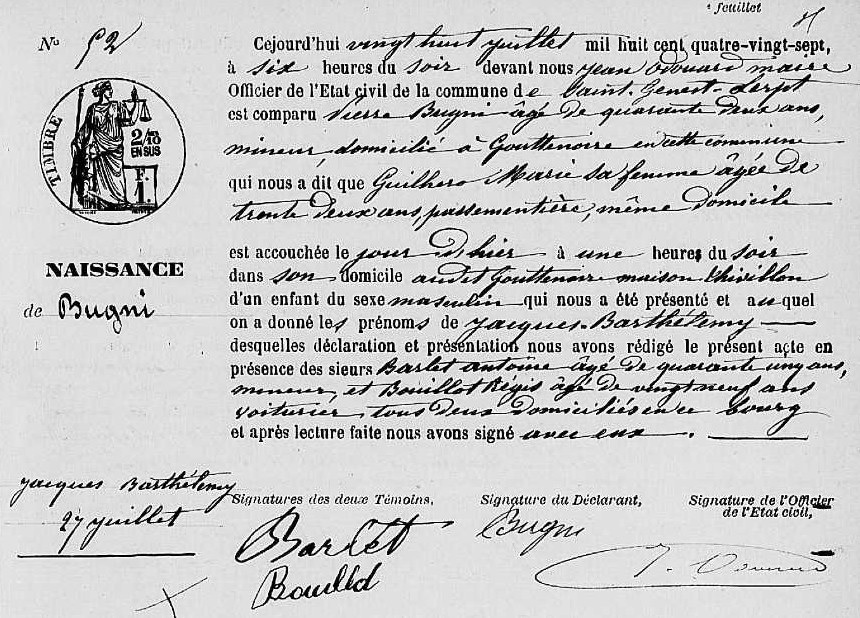 feuillet
No 52
Cejourd'hui vingt huit juillet mil huit cent quatre-vingt-sept,
à six heures du soir devant nous Jean Edouard maire
Officier de l'Etat civil de la commune de Saint-Genest-Lerpt
est comparu Pierre Bugni âgé de quarante deux ans,
mineur, domicilié à Gouttenoire en cette commune
qui nous a dit que Guilhero Marie sa femme âgée de
trente deux ans, passementière, même domicile
est accouchée le jour d'hier à une heures du soir
dans son domicile audit Gouttenoire maison Thivillon
d'un enfant du sexe masculin qui nous a été présenté et auquel
on a donné les prénoms de Jacques-Barthélemy
desquelles déclaration et présentation nous avons rédigé le présent acte en
présence des sieurs Barlet antoine âgé de quarante un ans,
mineur, et Bouillot Régis âgé de vingt neuf ans
voiturier tous deux domiciliés en ce bourg
et après lecture faite nous avons signé avec eux.
TIMBRE
2/10
EN SUS
F.
1
NAISSANCE
de Bugni
Jacques Barthélemy
27 juillet
Signatures des deux Témoins,
Barlet
Signature du Déclarant,
Bugni
Signature de l'Officier
de l'Etat civil,